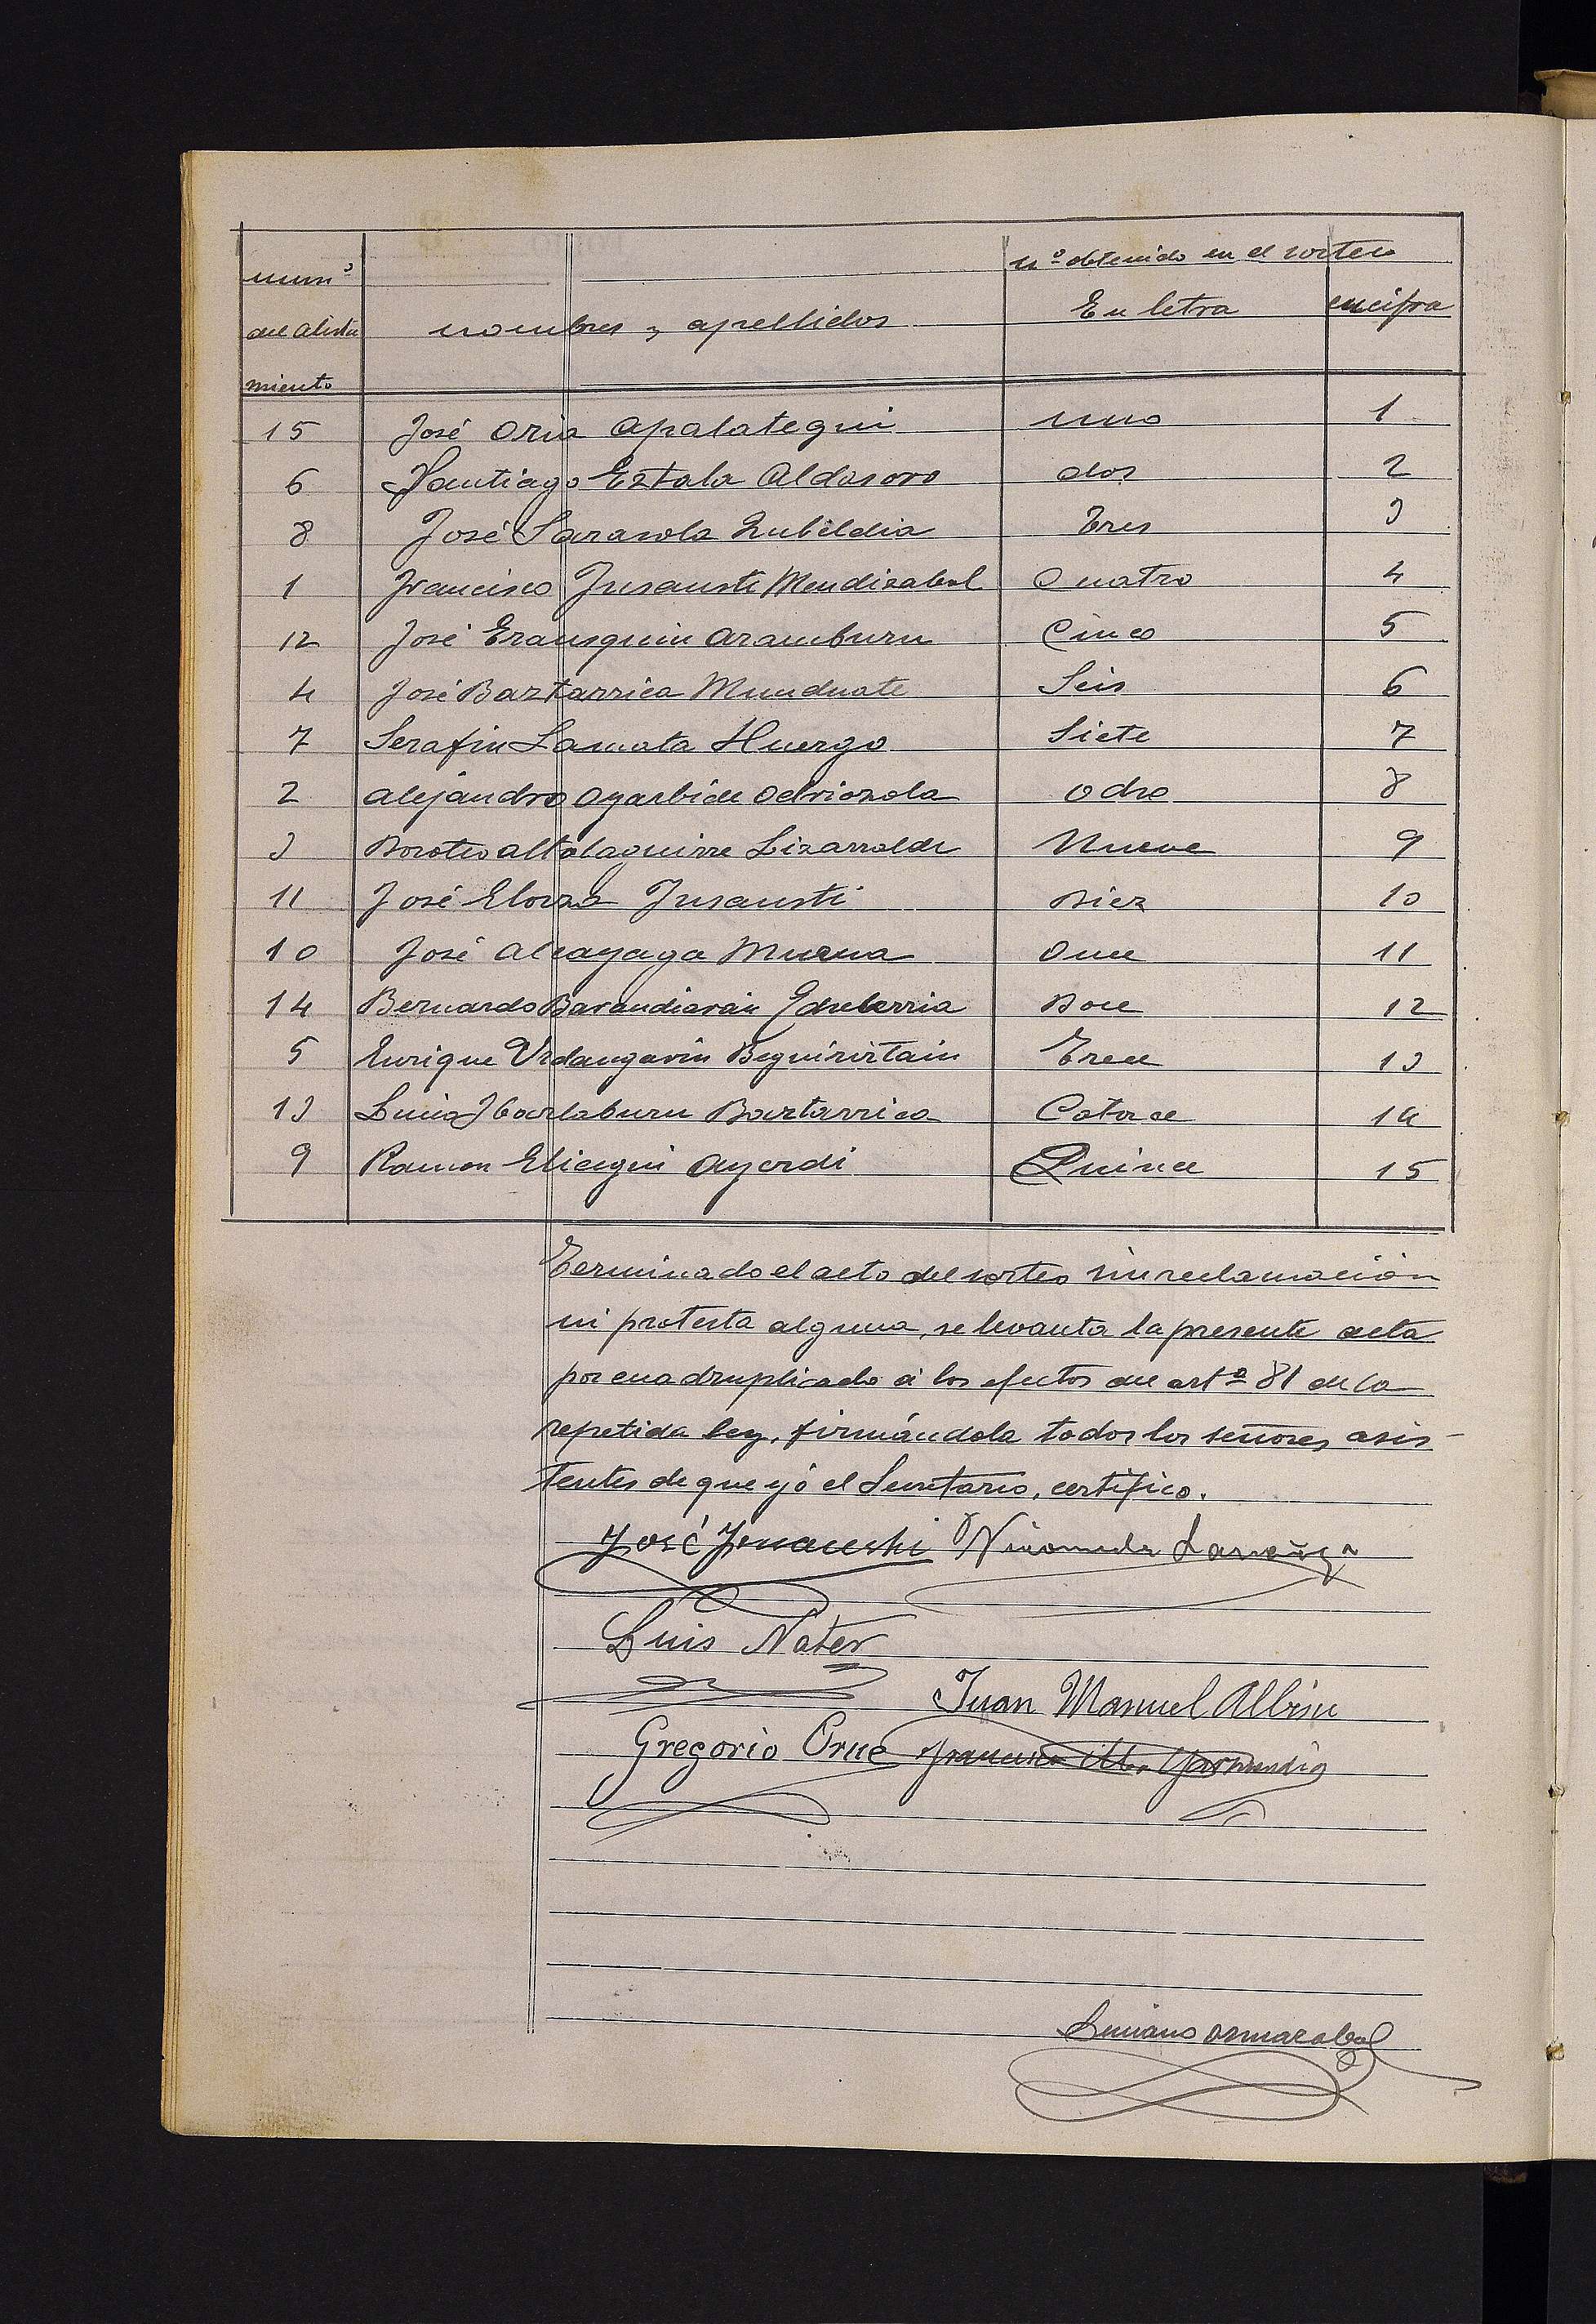 numº nº obtenido en el sorteo
del alista nombres y apellidos En letra en cifra
miento
15 José Oria Apalategui uno 1
6 Santiago Eztala Aldasoro dos 2
8 José Sarasola Zubeldia Tres 3
1 Francisco Insausti Mendizabal Cuatro 4
12 José Erausquin Aramburu Cinco 5
4 José Baztarrica Munduate Seis 6
7 Serafin Lamata Huergo Siete 7
2 Alejandro Oyarbide Odriozola Ocho 8
3 Doroteo Altolaguirre Lizarralde Nueve 9
11 José Elorza Insausti Diez 10
10 José Alcayaga Murua Once 11
14 Bernardo Barandiarán Echeberria Doce 12
5 Enrique Urdangarin Beguiristain Trece 13
13 Ibarlaburu Baztarrica Catorce 14
9 Ramon Elicegui Ayerdi Quince 15
Terminado el acto del sorteo sin reclamación
ni protesta alguna, se levanta la presente acta
por cuadruplicado á los efectos del artº 81 de la
repetida ley, firmándola todos los señores asis-
tentes de que yó el Secretario, certifico.
José Insausti Nicomedes Larrañaga
Luis Nater
Juan Manuel Albisu
Gregorio Orue Francisco M. Garmendia
Luciano